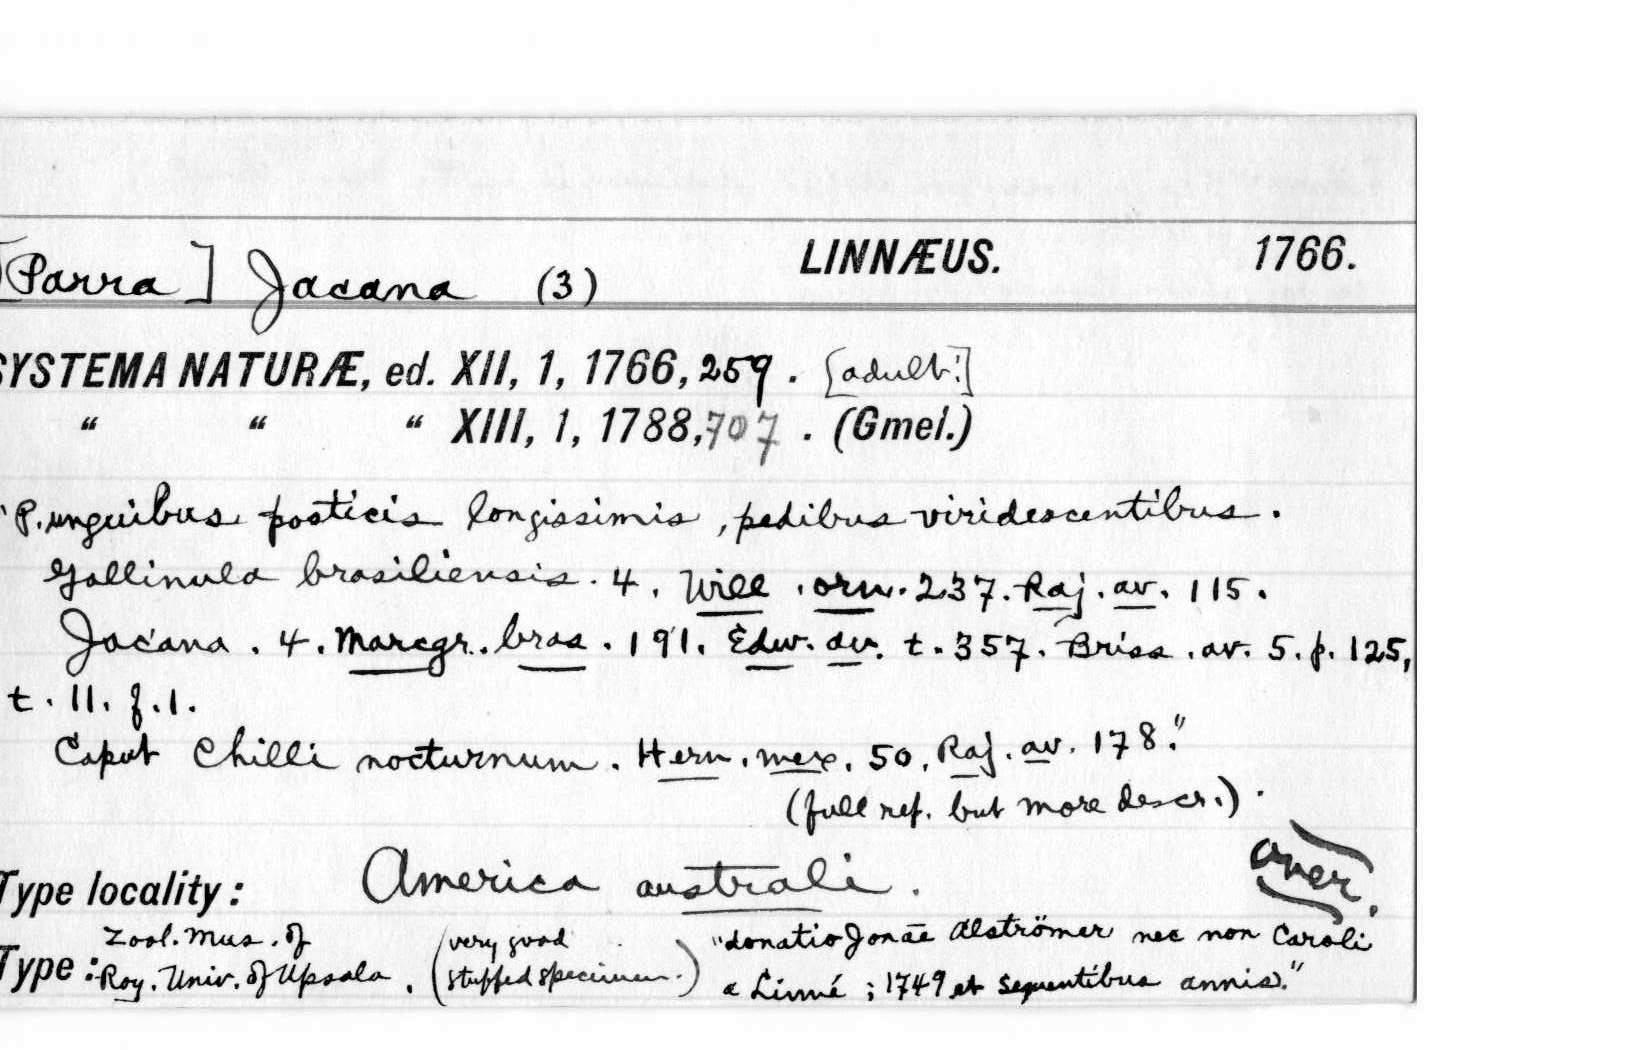 [Parra] Jacana (3) LINNÆUS. 1766.
SYSTEMA NATURÆ, ed. XII, 1, 1766, 259. [adult!]
“ “ “ XIII, 1, 1788, 707. (Gmel.)
"P. unguibus posticis longissimis, pedibus viridescentibus.
Gallinula brasiliensis. 4. Will. orn. 237. Raj. av. 115.
Jacana. 4. Marcgr. bras. 191. Edw. av. t. 357. Briss. av. 5. p. 125,
t. 11. f. 1.
Caput Chilli nocturnum. Hern. mex. 50. Raj. av. 178."
(full ref. but more descr.)
over.
Type locality: America australi.
Type: Zool. Mus. of Roy. Univ. of Upsala. (very good stuffed specimen.) "donatio Jonae Alströmer nec non Caroli
a Linné; 1749 et sequentibus annis."